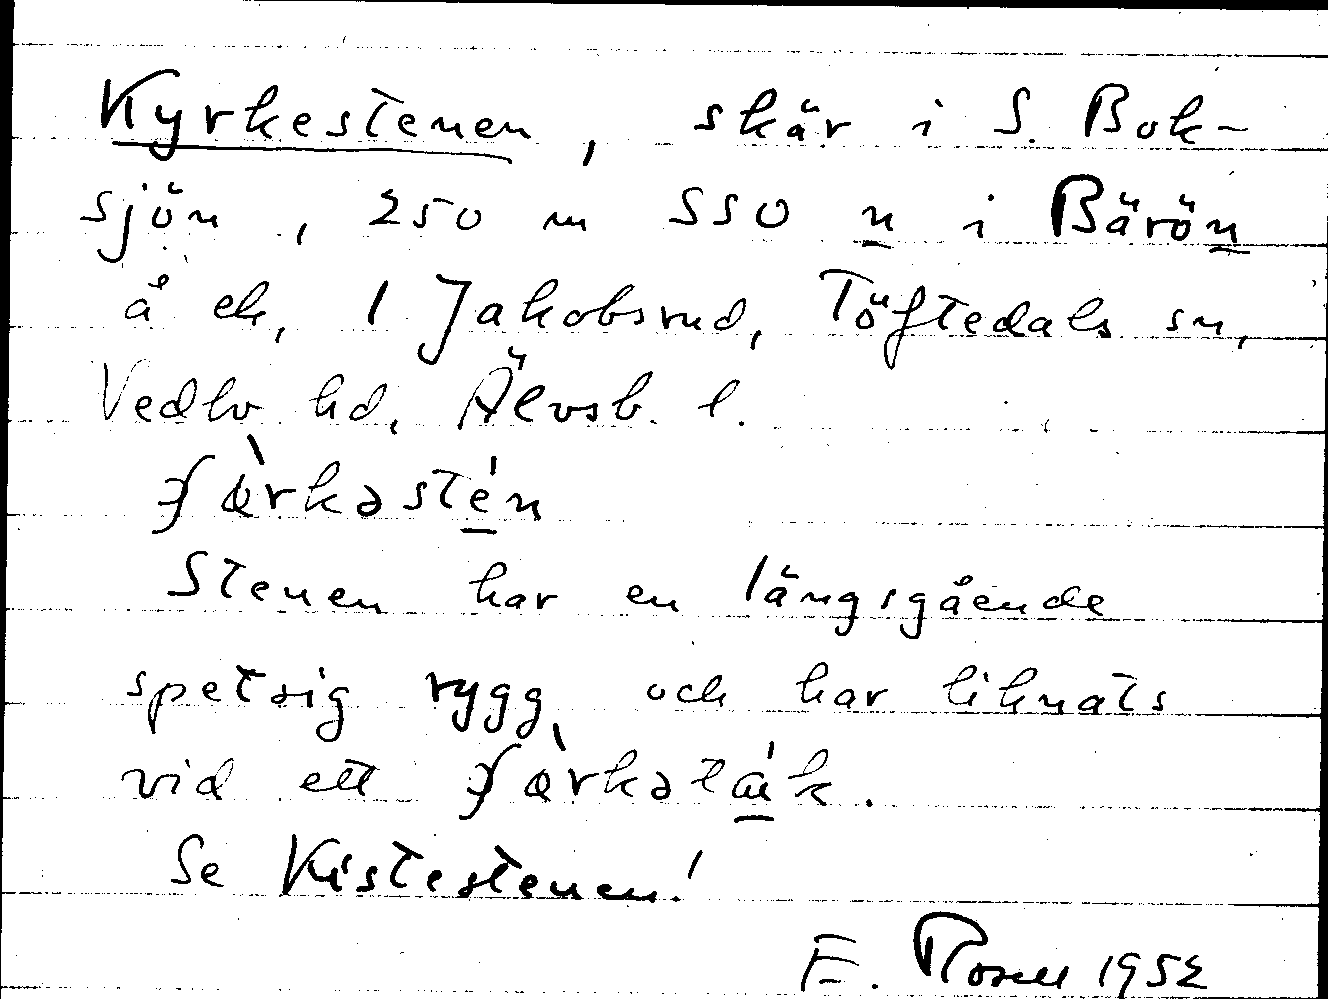 Kyrkestenen, skär i S. Bok-
sjön, 250 m SSO n i Bärön
å ek, 1 Jakobsrud, Töftedals sn,
Vedbo hd, Älvsb. l.
Stenen har en längsgående
spetsig rygg och har liknats
vid ett
Se Kistestenen!
E. 1952